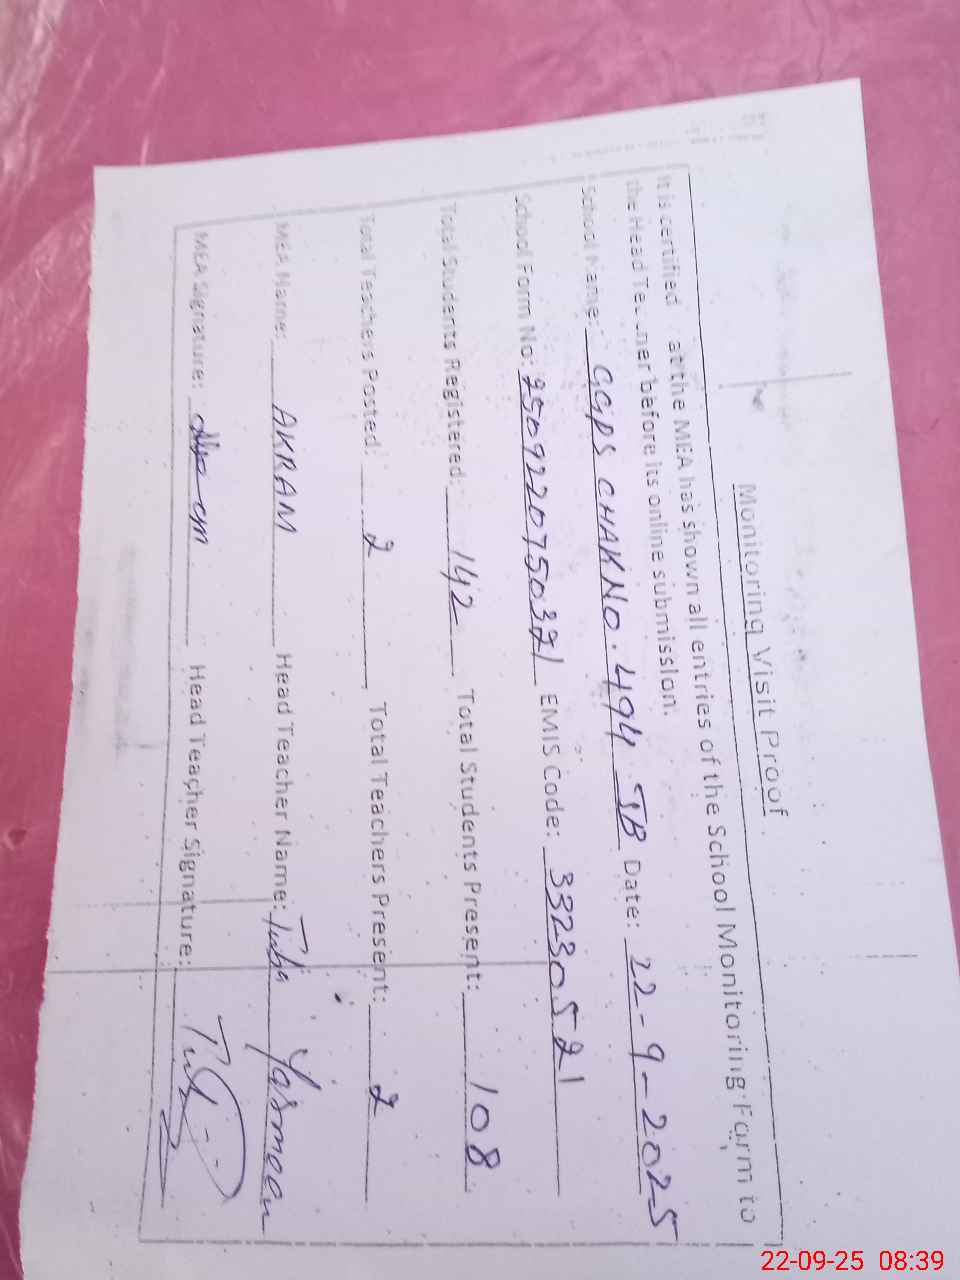 Monitoring Visit Proof
It is certified at the MEA has shown all entries of the School Monitoring Form to
the Head Te ner before its online submission.
School Name: GGPS CHAK NO. 494 JB Date: 22-9-2025
School Form No: 2509220750321 EMIS Code: 33230521
Total Students Registered: 142 Total Students Present: 108
Total Teachers Posted: 2 Total Teachers Present: 2
MEA Name: AKRAM Head Teacher Name: Yasmeen
MEA Signature: Head Teacher Signature:
22-09-25 08:39